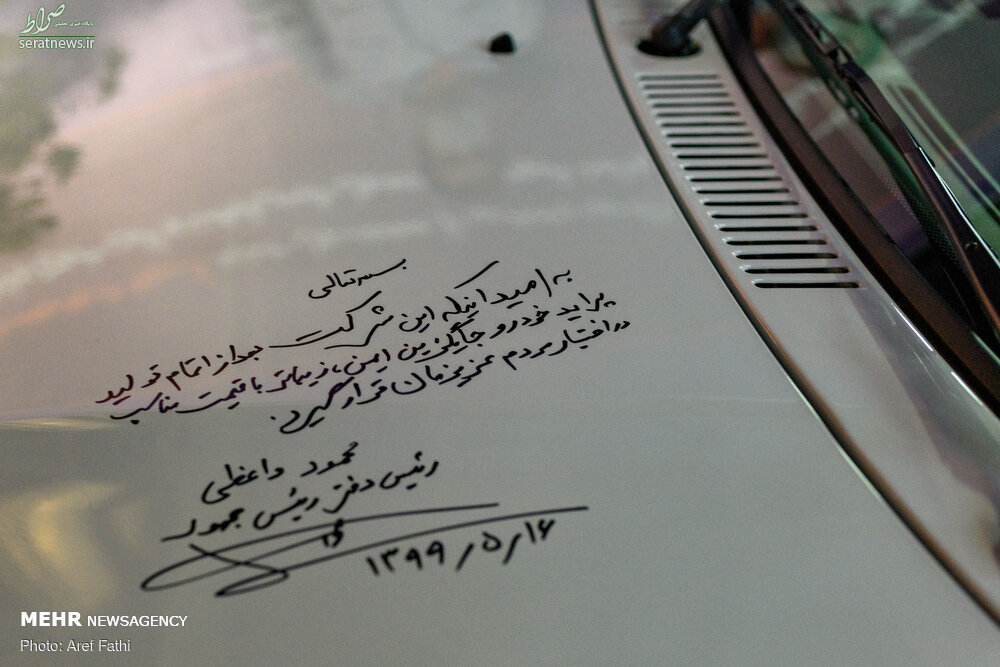 صراط
پایگاه خبری تحلیلی
seratnews.ir
بسمه تعالی
به امید اینکه این شرکت بعد از اتمام تولید
پراید خودرو جایگزین ایمن، زیباتر با قیمت مناسب
در اختیار مردم عزیزمان قرار گیرد.
محمود واعظی
رئیس دفتر رئیس جمهور
۱۳۹۹/۵/۱۶
MEHR NEWSAGENCY
Photo: Aref Fathi